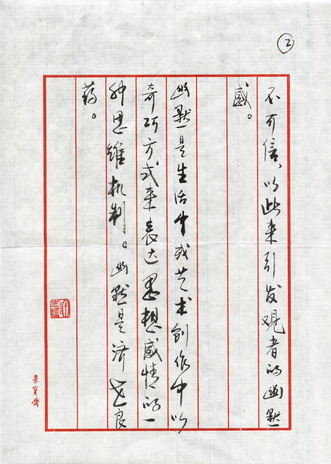 ②
不可信，以此来引发观者的幽默
感。
幽默是生活中或艺术创作中以
奇巧方式来表达思想感情的一
种思维机制。幽默是济世良
药。